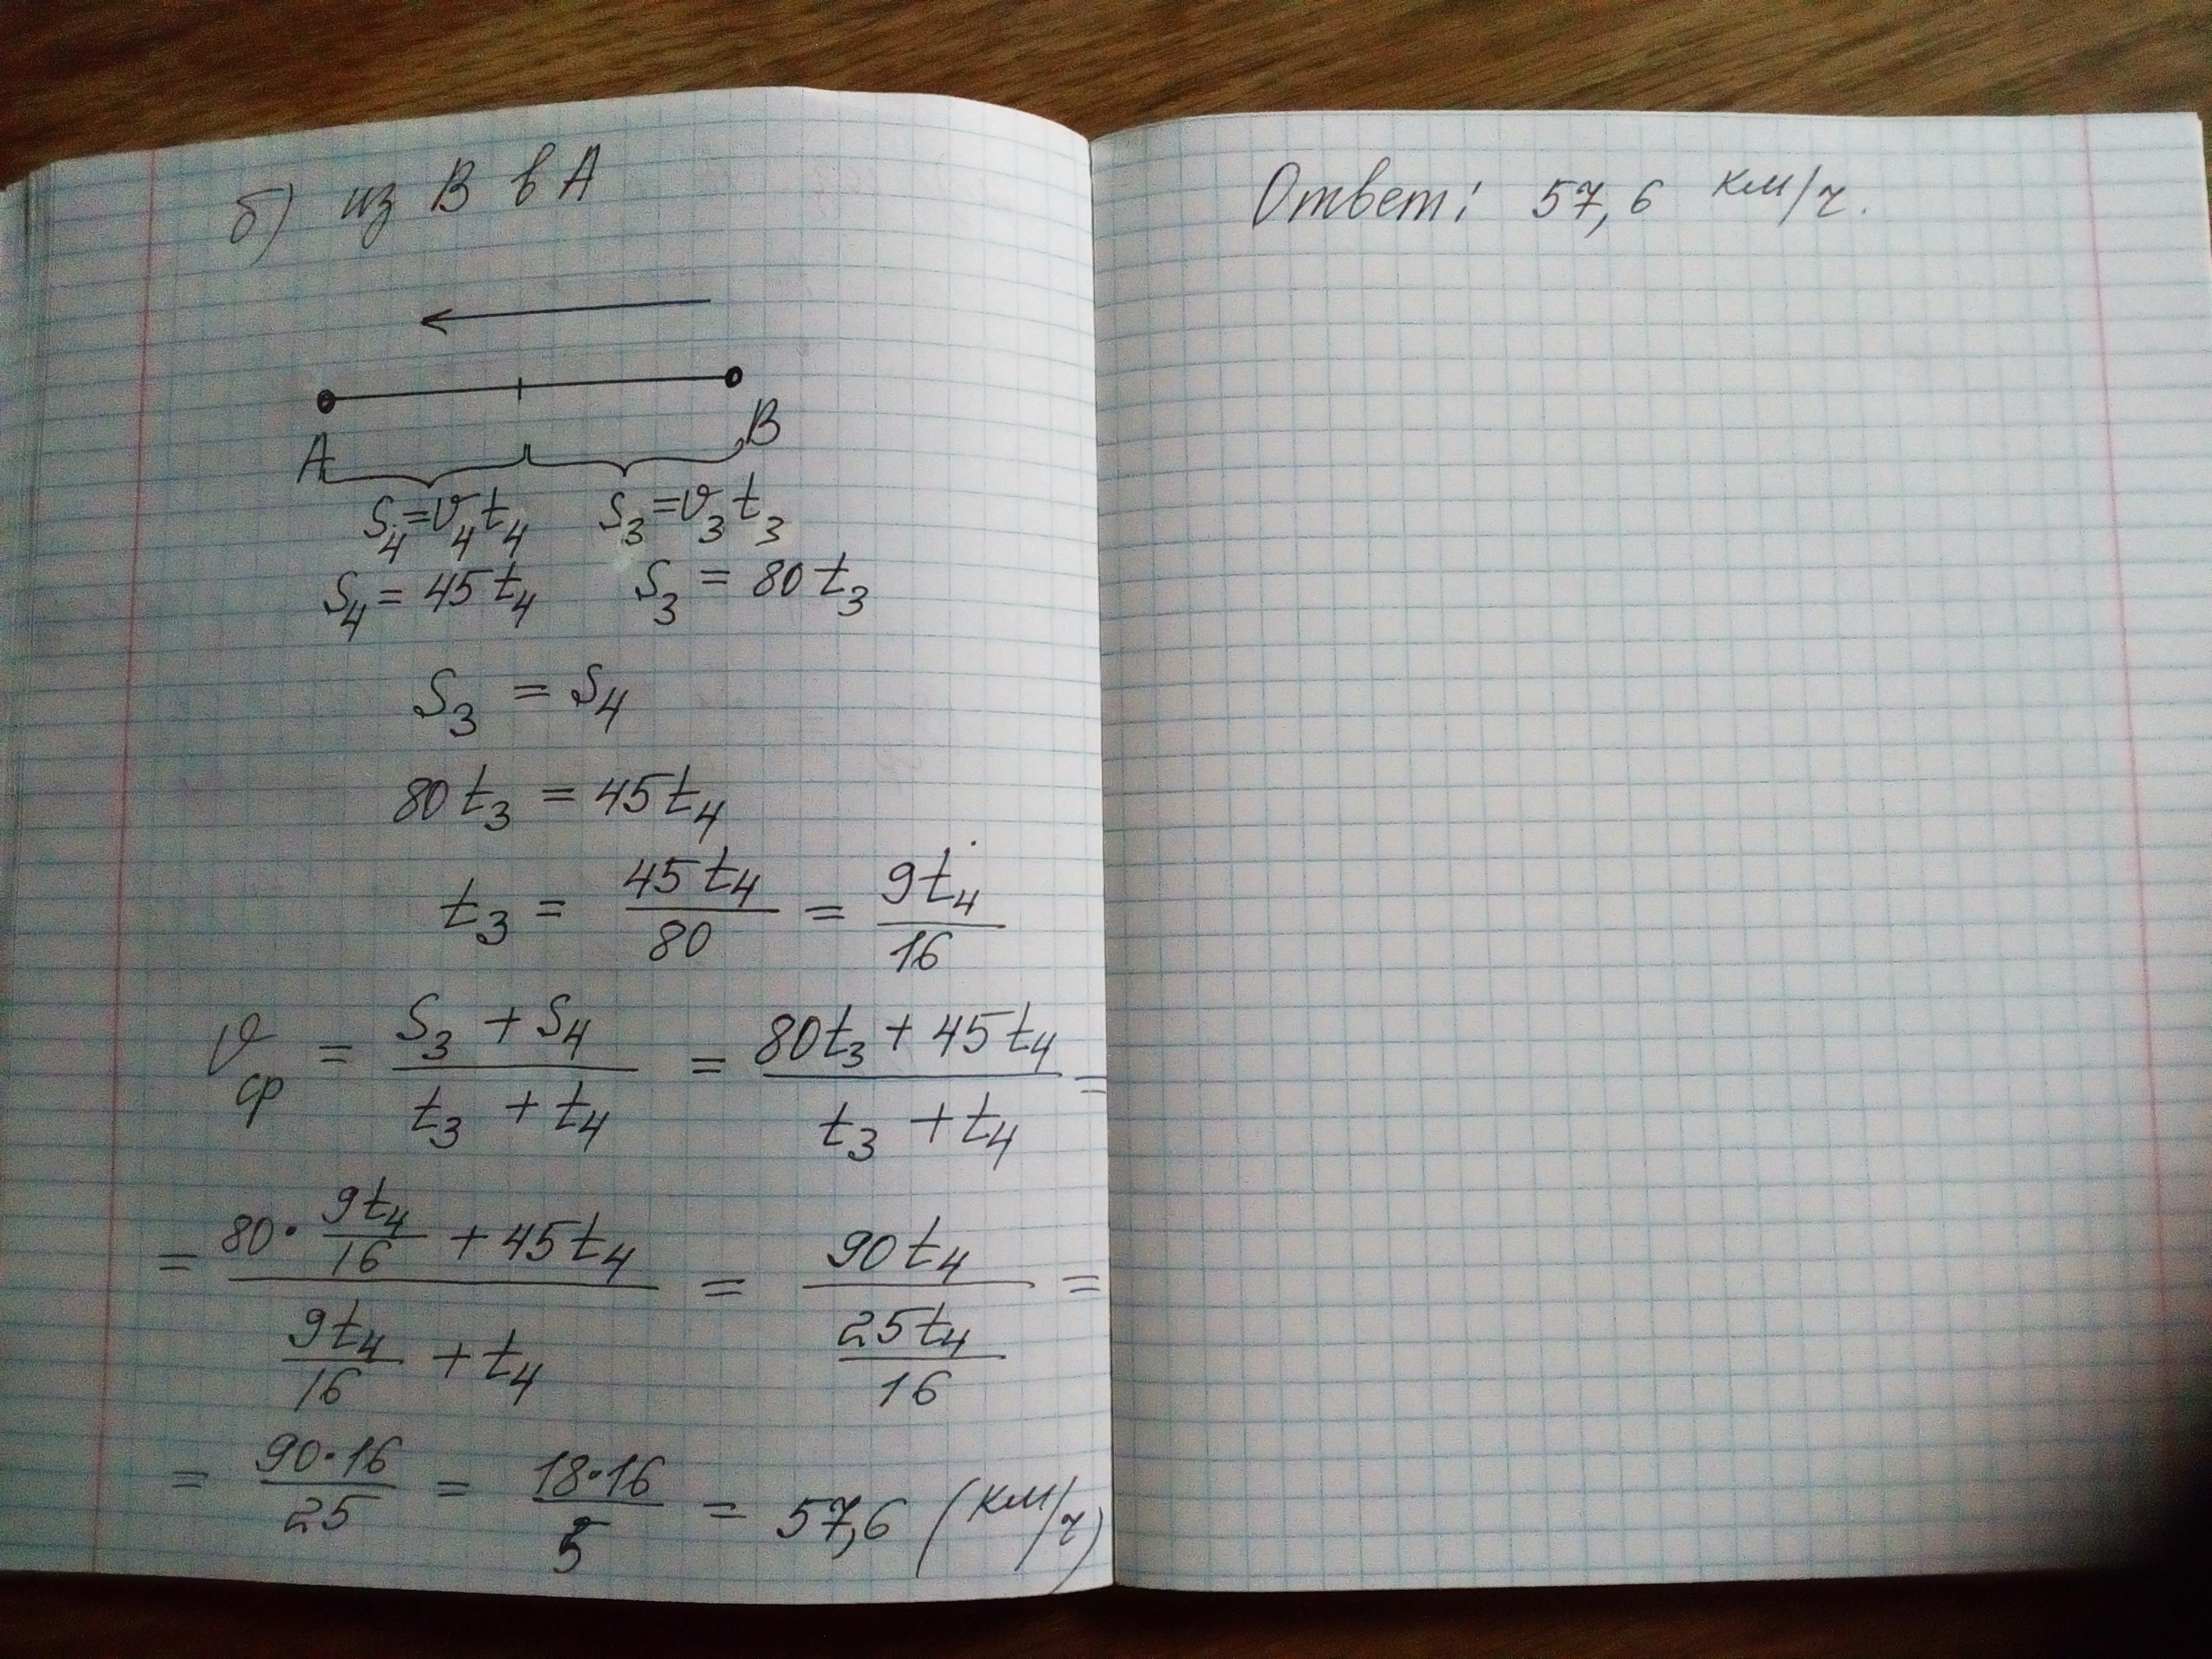 б) из В в А
А В
S₄=υ₄t₄ S₃=υ₃t₃
S₄ = 45t₄ S₃ = 80t₃
S₃ = S₄
80t₃ = 45t₄
t₃ = 45t₄/80 = 9t₄/16
υср = (S₃ + S₄)/(t₃ + t₄) = (80t₃ + 45t₄)/(t₃ + t₄) =
= (80 · 9t₄/16 + 45t₄)/(9t₄/16 + t₄) = 90t₄/(25t₄/16) =
= 90·16/25 = 18·16/5 = 57,6 (км/ч)
Ответ: 57,6 км/ч.